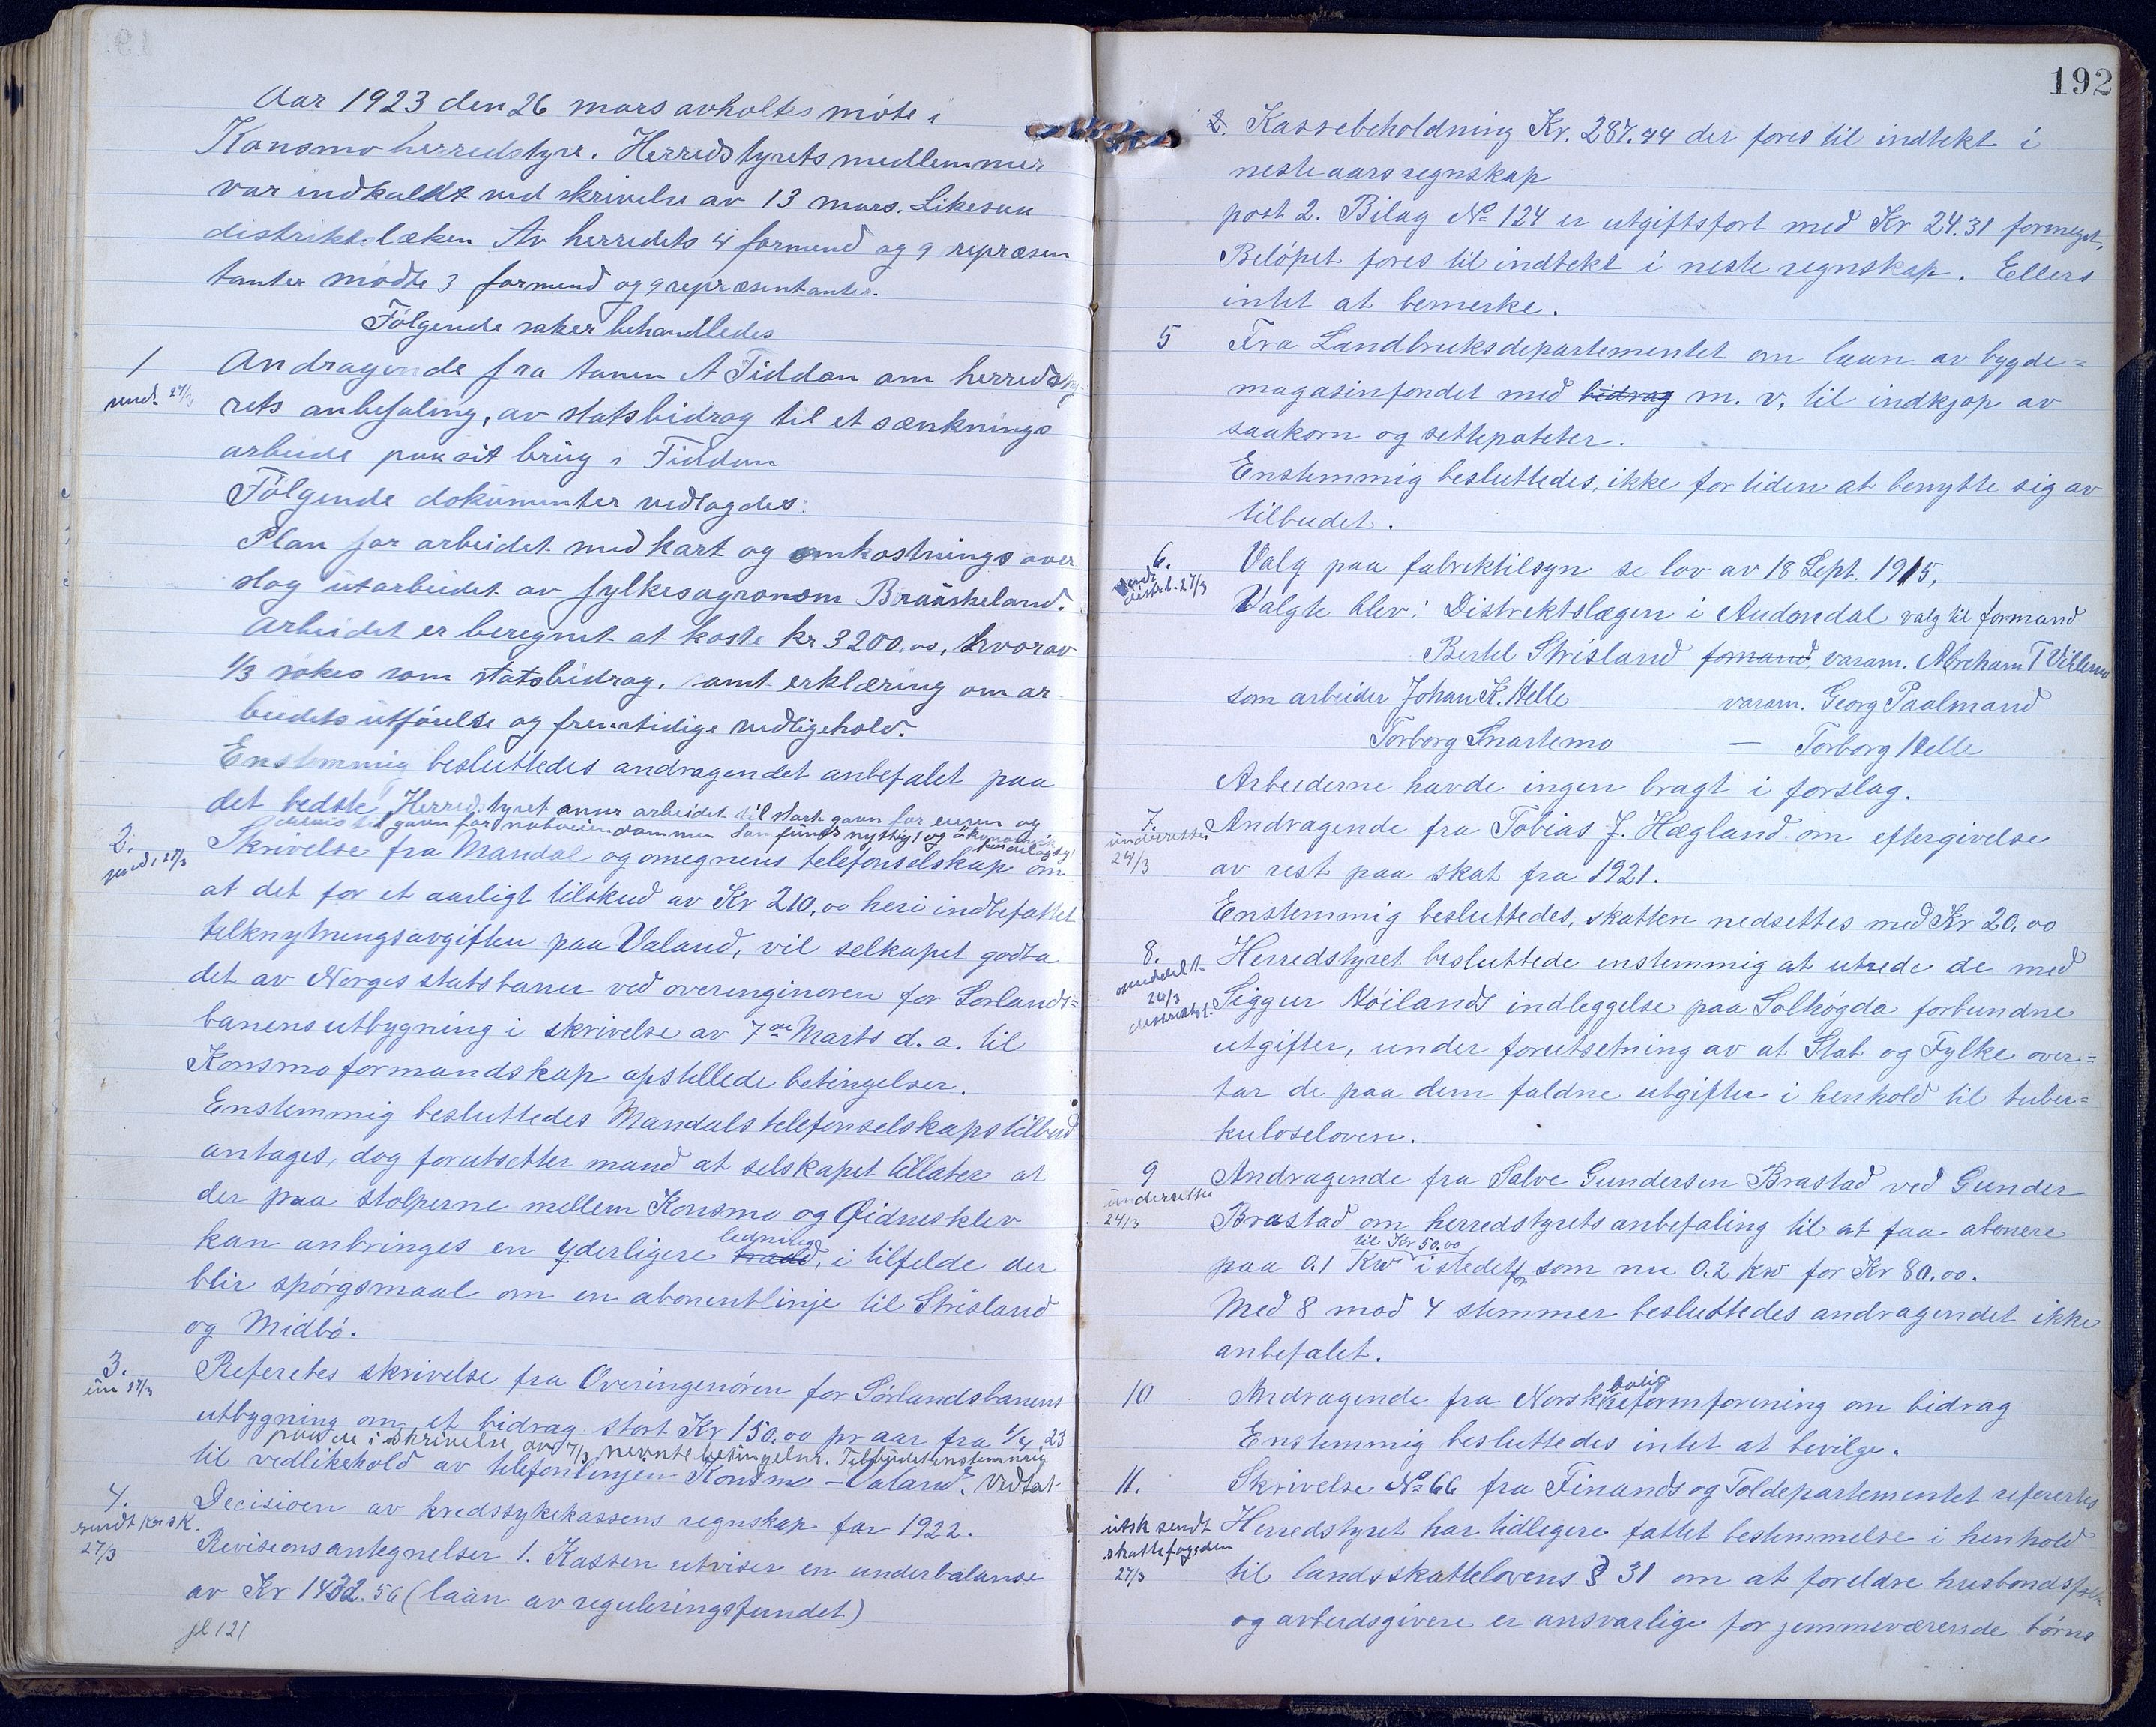 Aar 1923 den 26 mars avholtes móte i
Konsmo herredstyre. Herredstyrets medlemmer
var indkaldt ved skrivelse av 13 mars. Likesaa
distriktslæken Av herredets 4 formend og 9 repræsen
tanter mödte 3 formend og 9 repræsentanter.
Fölgende saker behandledes
1 Andragende fra tanen A Fiddan om herredsty-
send. 27/3 rets anbefaling, av statsbidrag til et sænknings
arbeide paa sit brug i Fiddan
Fölgende dokumenter vedlagdes:
Plan for arbeidet med kart og omkostnings over
slag utarbeidet av fylkesagronom Braaskeland.
Arbeidet er beregnet at koste kr 3200.00, hvorav
1/3 sökes som statsbidrag, samt erklæring om ar
beidets utförelse og fremtidige vedligehold.
Enstemmig besluttedes andragendet anbefalet paa
det bedste Herredstyret anser arbeidet til stort gavn for eieren og
delvis til gavn for naboeiendommen Samfunds nyttig og ökonomisk
2. Skrivelse fra Mandal og omegnens telefonselskap om
send. 27/3
at det for et aarligt tilskud av Kr 210,00 heri indbefattet
tilknytningsavgiften paa Valand, vil selkapet godta
det av Norges statsbaner ved overenginören for Sorlands=
banens utbygning i skrivelse av 7de Marts d. a. til
Konsmo formandskap opstillede betingelser.
Enstemmig besluttedes Mandals telefonselskaps tilbud
antages, dog forutsetter mand at selskapet tillater at
der paa stolperne mellem Konsmo og Øidnesklev
ledning
kan anbringes en yderligere traad, i tilfelde der
blir spórgsmaal om en abonentlinje til Strisland
og Midbó.
3. Referetes skrivelse fra Overingenören for Sörlandsbanens
un 27/3
utbygning om et bidrag stort Kr 150.00 pr aar fra 1/4 23
paa de i skrivelse av 7/3 nevnte betingelser. Tilbudet enstemmig
til vedlikehold av telefonlinjen Konsmo - Valand. Vedtat
4. Decisioen av kredssykekassens regnskap for 1922.
sendt kr s K.
27/3 Revisionsantegnelser 1. Kassen utviser en underbalanse
av Kr 1432.56 (laan av reguleringsfundet)
fl 121
192
2. Kassebeholdning Kr. 287.44 der fores til indtekt i
neste aars regnskap
post 2. Bilag No 124 er utgiftsfort med Kr 24.31 formeget,
Belópet fores til indtekt i neste regnskap. Ellers
intet at bemerke.
5 Fra Landbruksdepartementet om laan av bygde=
magasinfondet med bidrag m. v, til indkjøp av
saakorn og settepoteter.
Enstemmig besluttedes, ikke for tiden at benytte sig av
tilbudet.
6. Valg paa fabriktilsyn se lov av 18 Sept. 1915,
send. distr.l. 27/3
Valgte blev: Distriktslægen i Audendal valg til formand
Bertil Strisland fomand, varam. Abraham T Vittemo
som arbeider Johan K. Helle varam. Georg Paalmand
Torborg Snartemo — Torborg Helle
Arbeiderne havde ingen bragt i forslag.
7. Andragende fra Tobias J. Hægland om eftergivelse
underettes
24/3 av rest paa skat fra 1921.
Enstemmig besluttedes, skatten nedsettes med Kr 20.00
8. Herredstyret besluttede enstemmig at utrede de med
meddelt
24/3
distriktsl. Siggur Nöilands indleggelse paa Solhøgda forbundne
utgifter, under forutsetning av at Stat og Fylke over=
tar de paa dem faldne utgifter i henhold til tuber=
kuloseloven.
9 Andragende fra Salve Gundersen Brastad ved Gunder
underrettes
24/3 Brastad om herredstyrets anbefaling til at faa abonere
til Kr 50.00
paa 0.1 Kw istedetfor som nu 0.2 Kw for Kr 80.00.
Med 8 mod 4 stemmer besluttedes andragendet ikke
anbefalet.
bolig
10 Andragende fra Norsk reformforening om bidrag
Enstemmig besluttedes intet at bevilge.
11. Skrivelse No 66 fra Finands og Toldepartementet refertes
utsk sendt
skattefogden
27/3 Herredstyret har tidligere fattet bestemmelse i henhold
til landsskattelovens § 31 om at foreldre husbondsfolk
og arbeidsgivere er ansvarlige for jemmeværende börns